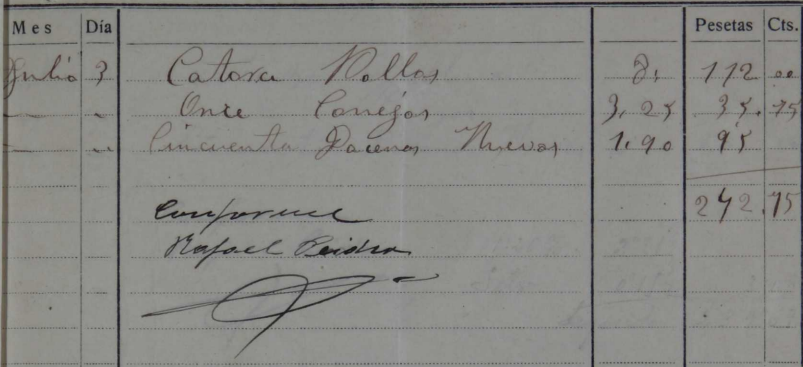 Mes Día Pesetas Cts.
Julio 3 Catorce Pollos 8, 112 00
— " Once Conejos 3,25 35.75
— " Cincuenta Docenas Huevos 1.90 95
242.75
Conforme
Rafael